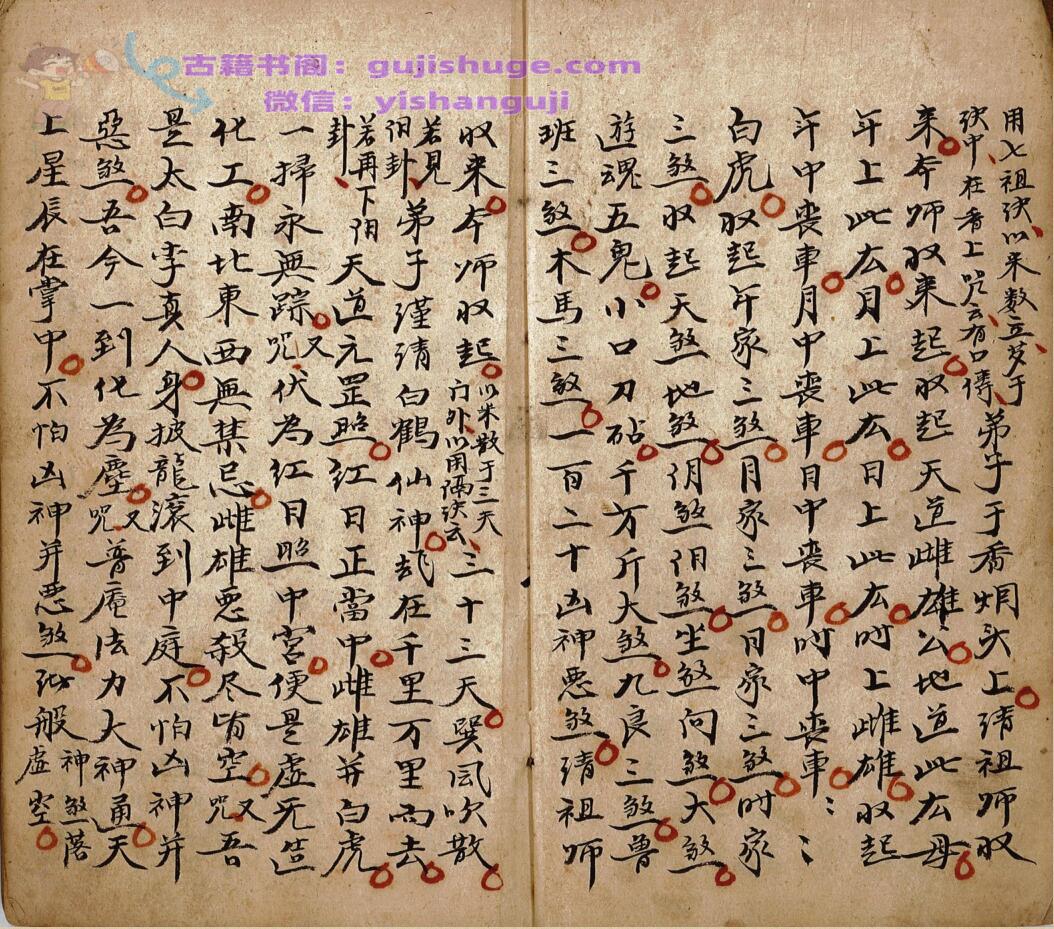 古籍书阁：gujishuge.com
微信：yishanguji
用七祖决以米数立茭于
决中在香上咒云有口傳弟子于香炯头上請祖师収
来夲师収来起収起天道雌雄公地道此厷母
年上此厷月上此厷日上此厷时上雌雄収起
年中喪車月中喪車日中喪車时中喪車
白虎収起年家三煞月家三煞日家三煞时家
三煞収起天煞地煞阴煞阳煞坐煞向煞大煞
遊魂五鬼小口刀砧千万斤大煞九良三煞魯
班三煞木馬三煞一百二十凶神惡煞請祖师
収来夲师収起以米数于三天
门外以用隔决云三十三天巽风吹散
若見
阳卦弟子谨請白鶴仙神却在千里万里而去
若再下阴
卦天道元罡照红日正當中雌雄并白虎
一掃永無踪又咒伏為红日照中宮便是虚无
化工南北東西無禁忌雌雄惡殺尽皆空又咒吾
是太白李真人身披龍滾到中庭不怕凶神并
惡煞吾今一到化為塵又咒普庵法力大神通天
上星辰在掌中不怕凶神并惡煞般神煞落
虚空